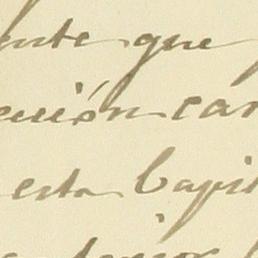 ente que
ción car
esta Capit